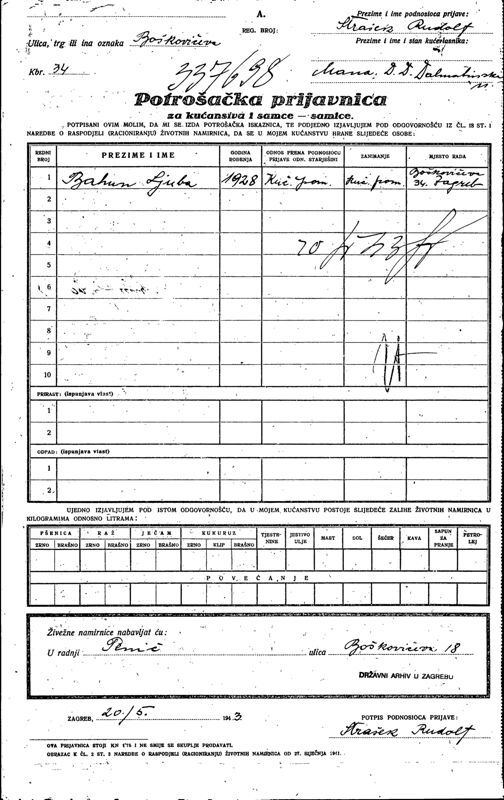 A.
REG. BROJ:
Prezime i ime podnosioca prijave:
Strašek Rudolf
Ulica, trg ili ina oznaka Boškovićeva
Prezime i ime i stan kućevlasnika:
Kbr. 34
337698
D. D. Dalmatinska
Potrošačka prijavnica
za kućanstva i samce — samice.
POTPISANI OVIM MOLIM, DA MI SE IZDA POTROŠAČKA ISKAZNICA, TE PODJEDNO IZJAVLJUJEM POD ODGOVORNOŠĆU IZ ČL. 18 ST. 1
NAREDBE O RASPODJELI (RACIONIRANJU) ŽIVOTNIH NAMIRNICA, DA SE U MOJEM KUĆANSTVU HRANE SLIJEDEĆE OSOBE:
REDNI BROJ PREZIME I IME GODINA ROĐENJA ODNOS PREMA PODNOSIOCU PRIJAVE ODN. STARJEŠINI ZANIMANJE MJESTO RADA
1 Bahun Ljuba 1928 Kuć. pom. Kuć. pom. Boškovićeva 34. Zagreb
2
3
4
5
6
7
8
9
10
PRIRAST: (ispunjava vlast)
1
2
OTPAD: (ispunjava vlast)
1
2
UJEDNO IZJAVLJUJEM POD ISTOM ODGOVORNOŠĆU, DA U MOJEM KUĆANSTVU POSTOJE SLIJEDEĆE ZALIHE ŽIVOTNIH NAMIRNICA U
KILOGRAMIMA ODNOSNO LITRAMA:
PŠENICA RAŽ JEČAM KUKURUZ TJESTENINE JESTIVO ULJE MAST SOL ŠEĆER KAVA SAPUN ZA PRANJE PETROLEJ
ZRNO BRAŠNO ZRNO BRAŠNO ZRNO BRAŠNO ZRNO KLIP BRAŠNO
POVEĆANJE
Živežne namirnice nabavljat ću:
U radnji ulica Boškovićeva 18
DRŽAVNI ARHIV U ZAGREBU
ZAGREB, 20./5. 1943
POTPIS PODNOSIOCA PRIJAVE:
Strašek Rudolf
OVA PRIJAVNICA STOJI KN 0.75 I NE SMIJE SE SKUPLJE PRODAVATI.
OBRAZAC K ČL. 2 ST. 2 NAREDBE O RASPODJELI (RACIONIRANJU) ŽIVOTNIH NAMIRNICA OD 27. SIJEČNJA 1941.